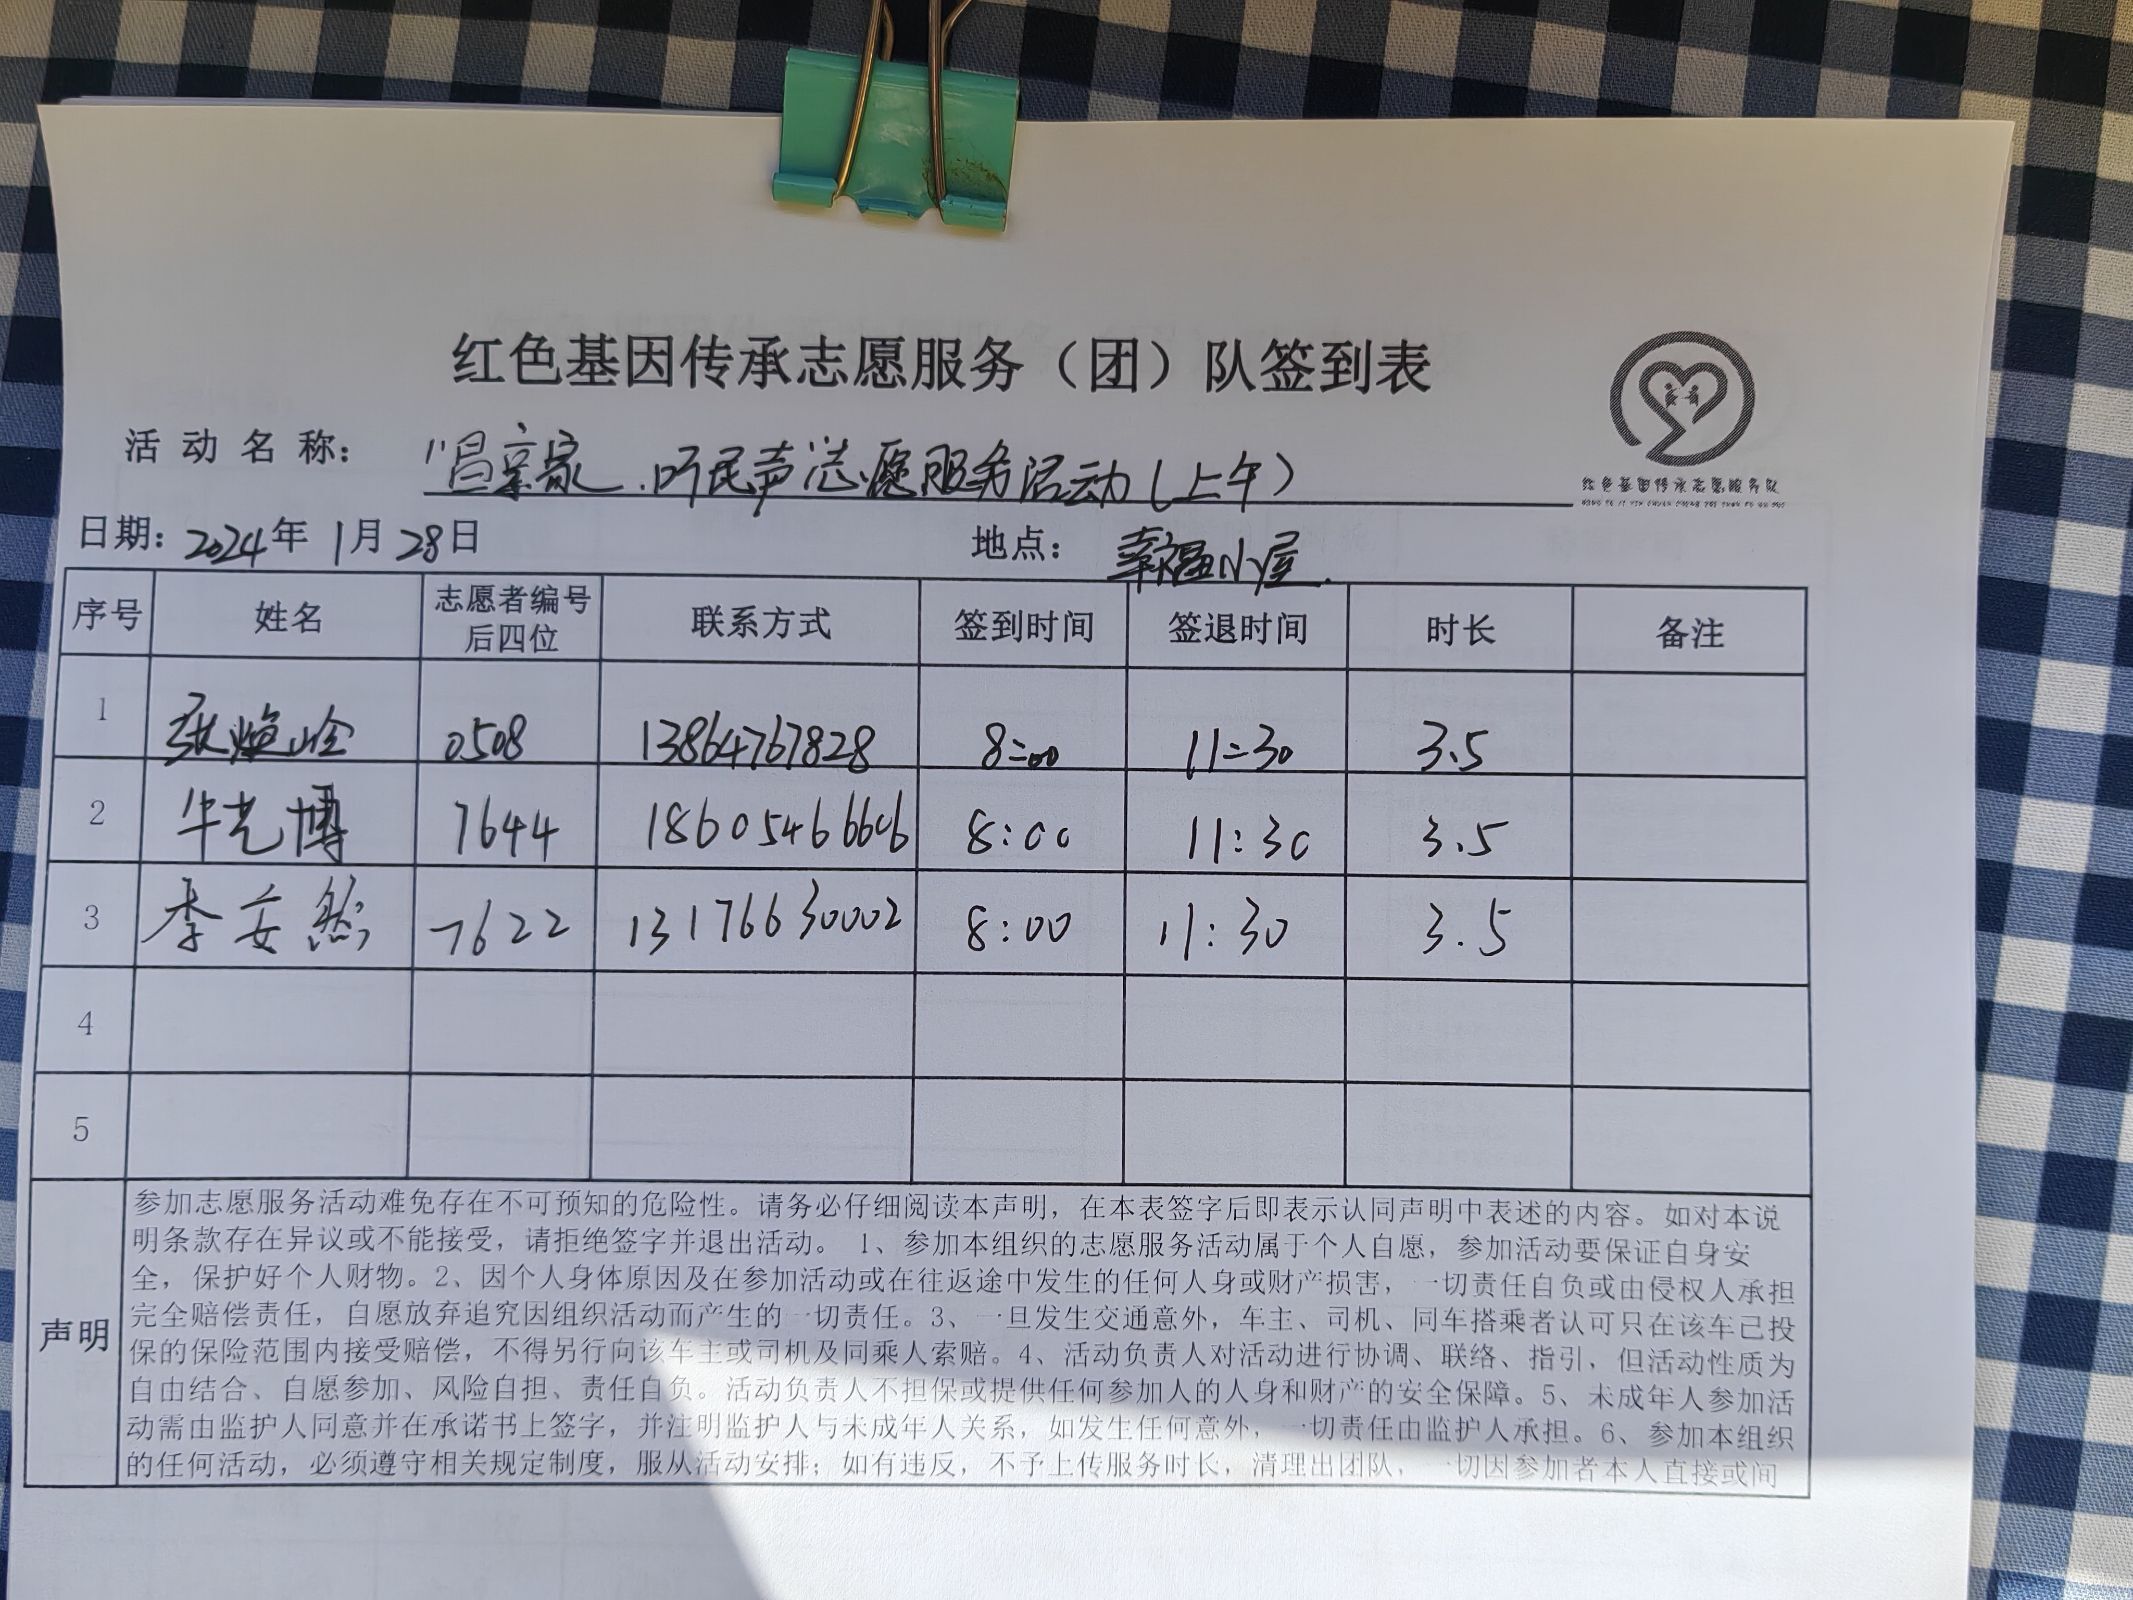 红色基因传承志愿服务（团）队签到表
红色基因传承志愿服务队
活动名称： 听民声志愿服务活动（上午）
日期：2024年 1月28日 地点：幸福小屋
序号 姓名 志愿者编号后四位 联系方式 签到时间 签退时间 时长 备注
1 张焕玲 0508 13864767828 8:00 11:30 3.5
2 牛艺博 7644 18605466606 8:00 11:30 3.5
3 李安然 7622 13176630002 8:00 11:30 3.5
4
5
声明
参加志愿服务活动难免存在不可预知的危险性。请务必仔细阅读本声明，在本表签字后即表示认同声明中表述的内容。如对本说
明条款存在异议或不能接受，请拒绝签字并退出活动。 1、参加本组织的志愿服务活动属于个人自愿，参加活动要保证自身安
全，保护好个人财物。2、因个人身体原因及在参加活动或在往返途中发生的任何人身或财产损害，一切责任自负或由侵权人承担
完全赔偿责任，自愿放弃追究因组织活动而产生的一切责任。3、一旦发生交通意外，车主、司机、同车搭乘者认可只在该车已投
保的保险范围内接受赔偿，不得另行向该车主或司机及同乘人索赔。4、活动负责人对活动进行协调、联络、指引，但活动性质为
自由结合、自愿参加、风险自担、责任自负。活动负责人不担保或提供任何参加人的人身和财产的安全保障。5、未成年人参加活
动需由监护人同意并在承诺书上签字，并注明监护人与未成年人关系，如发生任何意外，一切责任由监护人承担。6、参加本组织
的任何活动，必须遵守相关规定制度，服从活动安排；如有违反，不予上传服务时长，清理出团队，一切因参加者本人直接或间